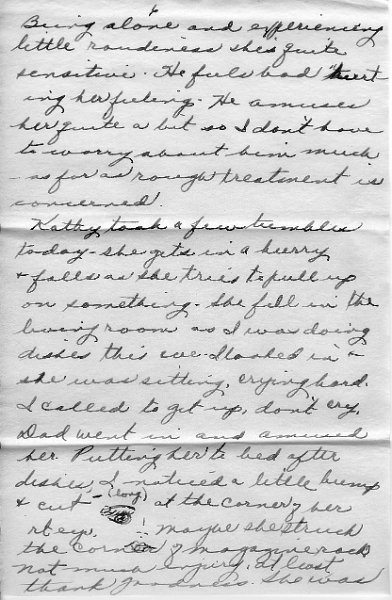 6
Being alone and experiencing
little roudeness shes quite
sensitive. He feels bad hurt
ing her feeling. He amuses
her quite a bit so I don't have
to worry about him much
- as far as rough treatment is
concerned.
Kathy took a few tumbles
today - she gets in a hurry
+ falls as she tries to pull up
on something. She fell in the
living room as I was doing
dishes this eve. I looked in +
she was sitting, crying hard.
I called to get up, don't cry,
Dad went in and amused
her. Putting her to bed after
dishes, I noticed a little bump
+ cut - (long) at the corner of her
rt eye. maybe she struck
the corner of magazine rack
not much injury, at least
thank goodness. She was